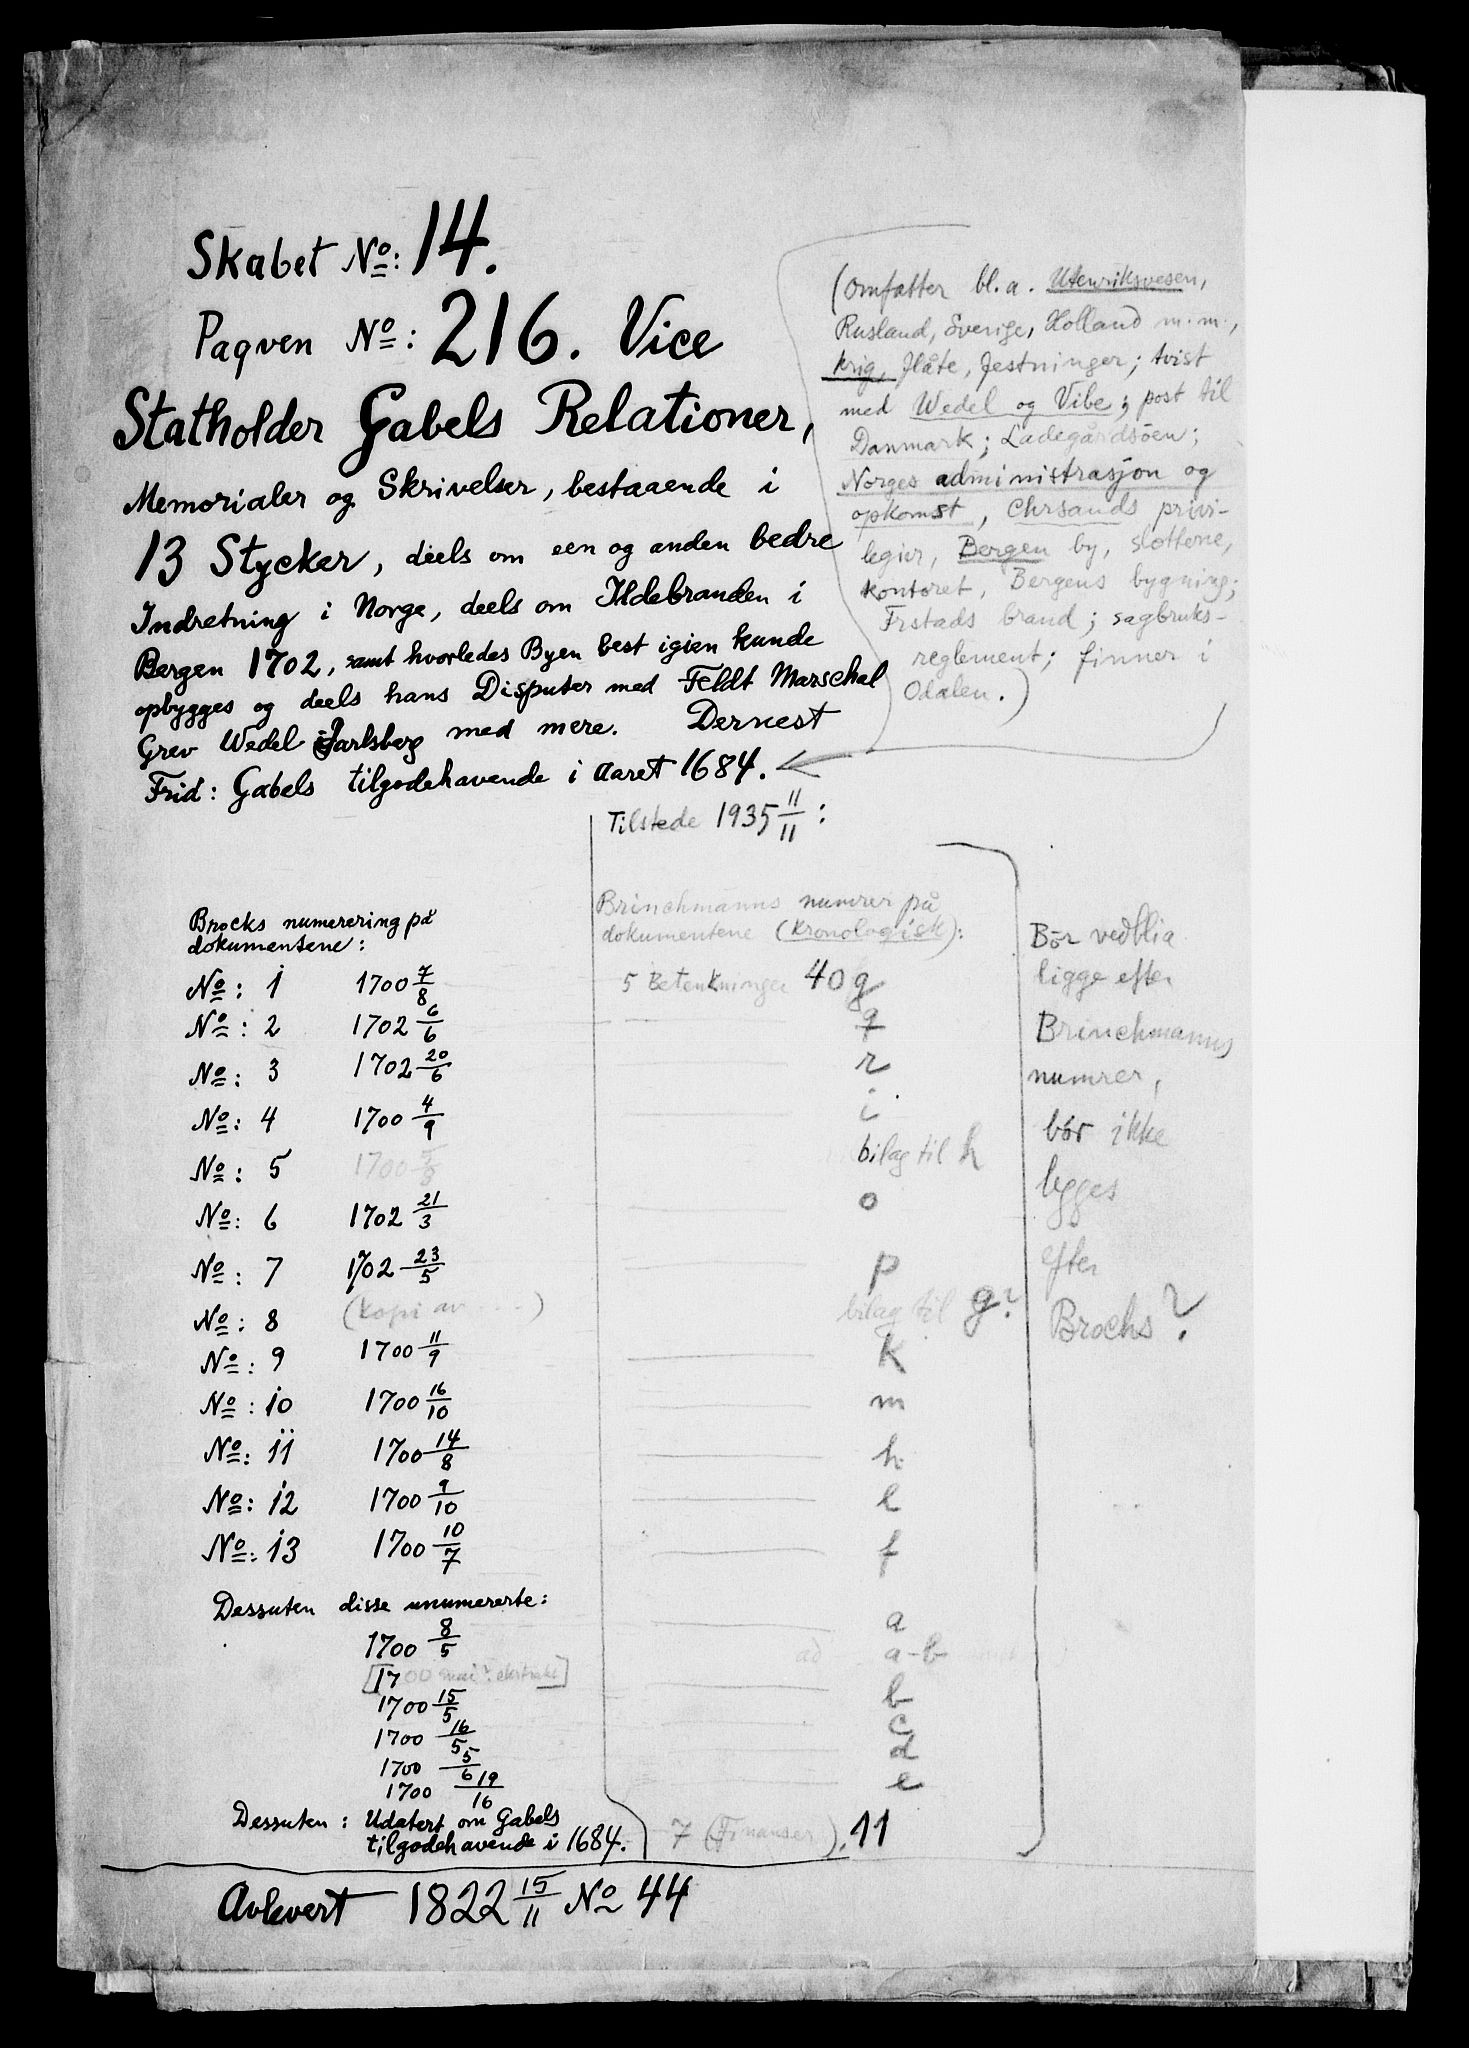 Skabet No: 14.
Paqven No: 216. Vice
Statholder Gabels Relationer,
Memorialer og Skrivelser, bestaaende i
13 Stycker, deels om een og anden bedre
Indretning i Norge, deels om Ildebranden i
Bergen 1702, samt hvorledes Byen best igien kunde
opbygges og deels hans Disputer med Feldt Marschal
Grev Wedel Jarlsberg med mere. Dernest
Frid: Gabels tilgodehavende i Aaret 1684.
(omfatter bl.a. Utenriksvesen,
Rusland, Sverige, Holland m.m.,
krig, flåte, festninger; tvist
med Wedel og Vibe; post til
Danmark; Ladegårdsöen;
Norges administrasjon og
opkomst, Chrsands privi-
legier, Bergen by, slottene,
kontoret, Bergens bygning;
Frstads brand; sagbruks-
reglement; finner i
Odalen.)
Tilstede 1935 11/11:
Brocks numerering på
dokumentene:
Brinchmanns numrer på
dokumentene (kronologisk):
No: 1 1700 7/8 5 Betenkninger 40 g
No: 2 1702 6/6 q
No: 3 1702 20/6 r
No: 4 1700 4/9 i
No: 5 1700 bilag til h
No: 6 1702 21/3 o
No: 7 1702 23/5 p
No: 8 (kopi av ....) bilag til g?
No: 9 1700 11/9 k
No: 10 1700 16/10 m
No: 11 1700 14/8 h
No: 12 1700 9/10 l
No: 13 1700 10/7 f
Dessuten disse unumererte:
1700 8/5 a
[1700 mai? ekstrakt] ad a-b
1700 15/5 b
1700 16/5 c
1700 5/6 d
1700 19/16 e
Dessuten: Udatert om Gabels
tilgodehavende i 1684. 7 (Finanser). 11
Bör vedblia
ligge efter
Brinchmanns
numrer,
bör ikke
legges
efter
Brochs?
Avlevert 1822 15/11 No 44